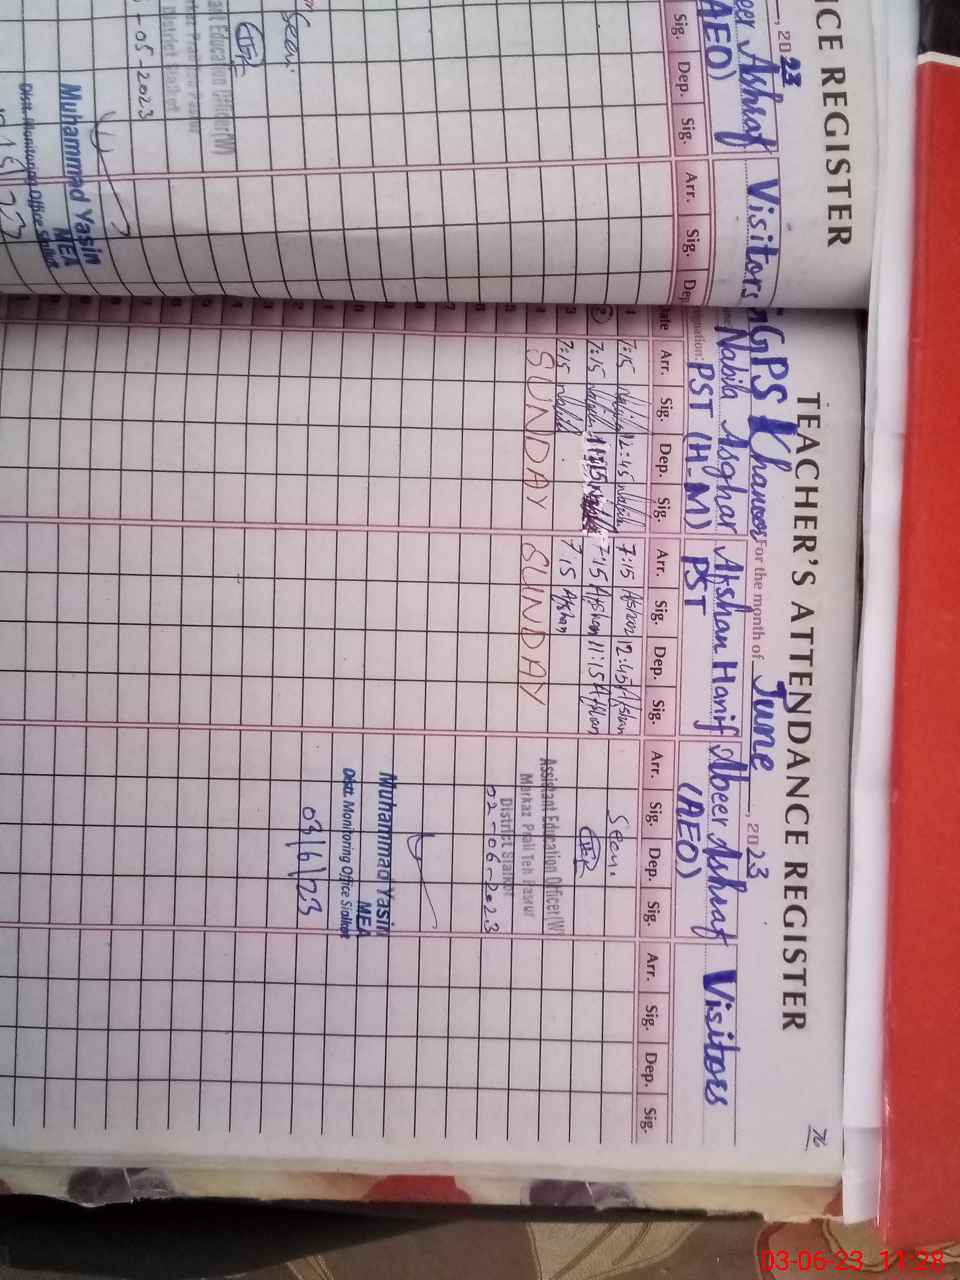 TEACHER'S ATTENDANCE REGISTER
76
GPS Khanoor For the month of June, 2023
Nabila Asghar Afshan Hanif Abeer Ashraf Visitors
PST (H-M) PST (AEO)
Arr. Sig. Dep. Sig. Arr. Sig. Dep. Sig. Arr. Sig. Dep. Sig. Arr. Sig. Dep. Sig.
1 7:15 12:45 7:15 Afshan 12:45 Afshan
2 7:15 11:15 7:15 Afshan 11:15 Afshan
3 7:15 7:15 Afshan
SUNDAY SUNDAY
Seen.
Assistant Education Officer(W)
Markaz Teh Pasrur
District Sialkot
02-06-2023
Muhammad Yasin
MEA
Distt. Monitoring Office Sialkot
03/6/23
CE REGISTER
, 2023
eer Ashraf Visitors
(AEO)
Sig. Dep. Sig. Arr. Sig. Dep
Seen.
Education Officer(W)
District Sialkot
-05-2023
Muhammad Yasin
MEA
Distt. Monitoring Office Sialkot
03-06-23 11:28